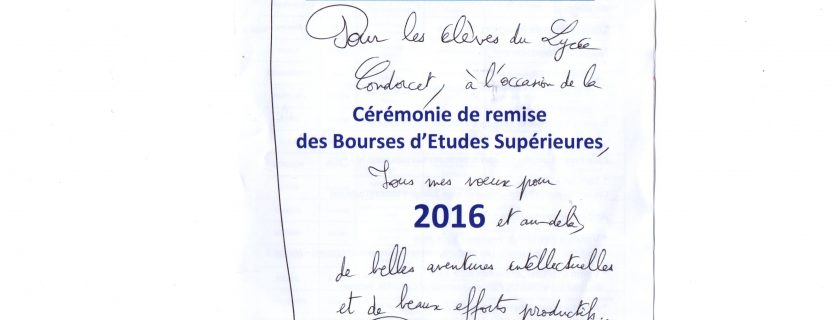 Pour les élèves du Lycée
Condorcet, à l'occasion de la
Cérémonie de remise
des Bourses d'Etudes Supérieures,
Tous mes voeux pour
2016 et au-delà,
de belles aventures intellectuelles
et de beaux efforts productifs..